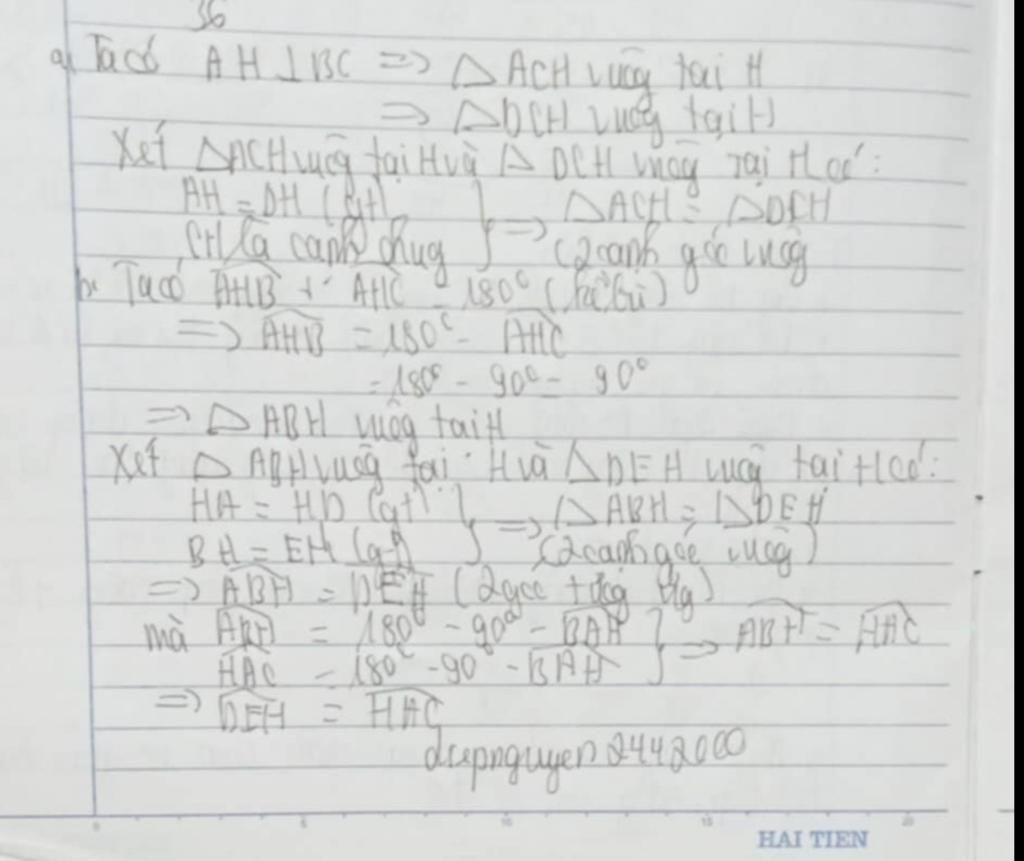 36
a, Ta có AH ⊥ BC => △ ACH vuôg tại H
=> △DCH vuôg tại H
Xét △ACH vuôg tại H và △ DCH vuôg tại H có:
AH = DH (gt) } => △ACH = △DCH
CH là cạnh chug (2 cạnh góc vuôg
b, Ta có AHB + AHC = 180° (kề bù)
=> AHB = 180° - AHC
= 180° - 90° = 90°
=> △ ABH vuôg tại H
Xét △ ABH vuôg tại H và △DEH vuôg tại H có:
HA = HD (gt) } => △ABH = △DEH
BH = EH (gt) (2 cạnh góc vuôg)
=> ABH = DEH (2 góc tươg ứg)
mà ABH = 180° - 90° - BAH } => ABH = HAC
HAC = 180° - 90 - BAH
=> DEH = HAC
diepnguyen2442000
0 5 10 15 20
HAI TIEN